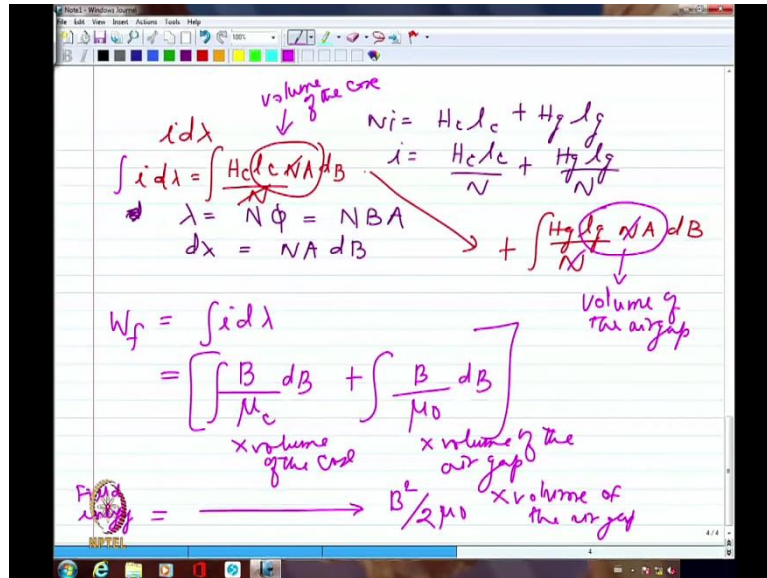 Note1 - Windows Journal
File Edit View Insert Actions Tools Help
100%
volume of the core
idλ
Ni = Hclc + Hglg
∫idλ = ∫ Hc lc NA/N dB
i = Hclc/N + Hglg/N
λ = Nφ = NBA
dx = NA dB
+ ∫ Hg lg NA/N dB
volume of the airgap
Wf = ∫idλ
= [∫ B/μc dB + ∫ B/μ0 dB]
x volume of the core
x volume of the air gap
Field energy = ⟶ B²/2μ0 x volume of the air gap
NPTEL
4/4
4